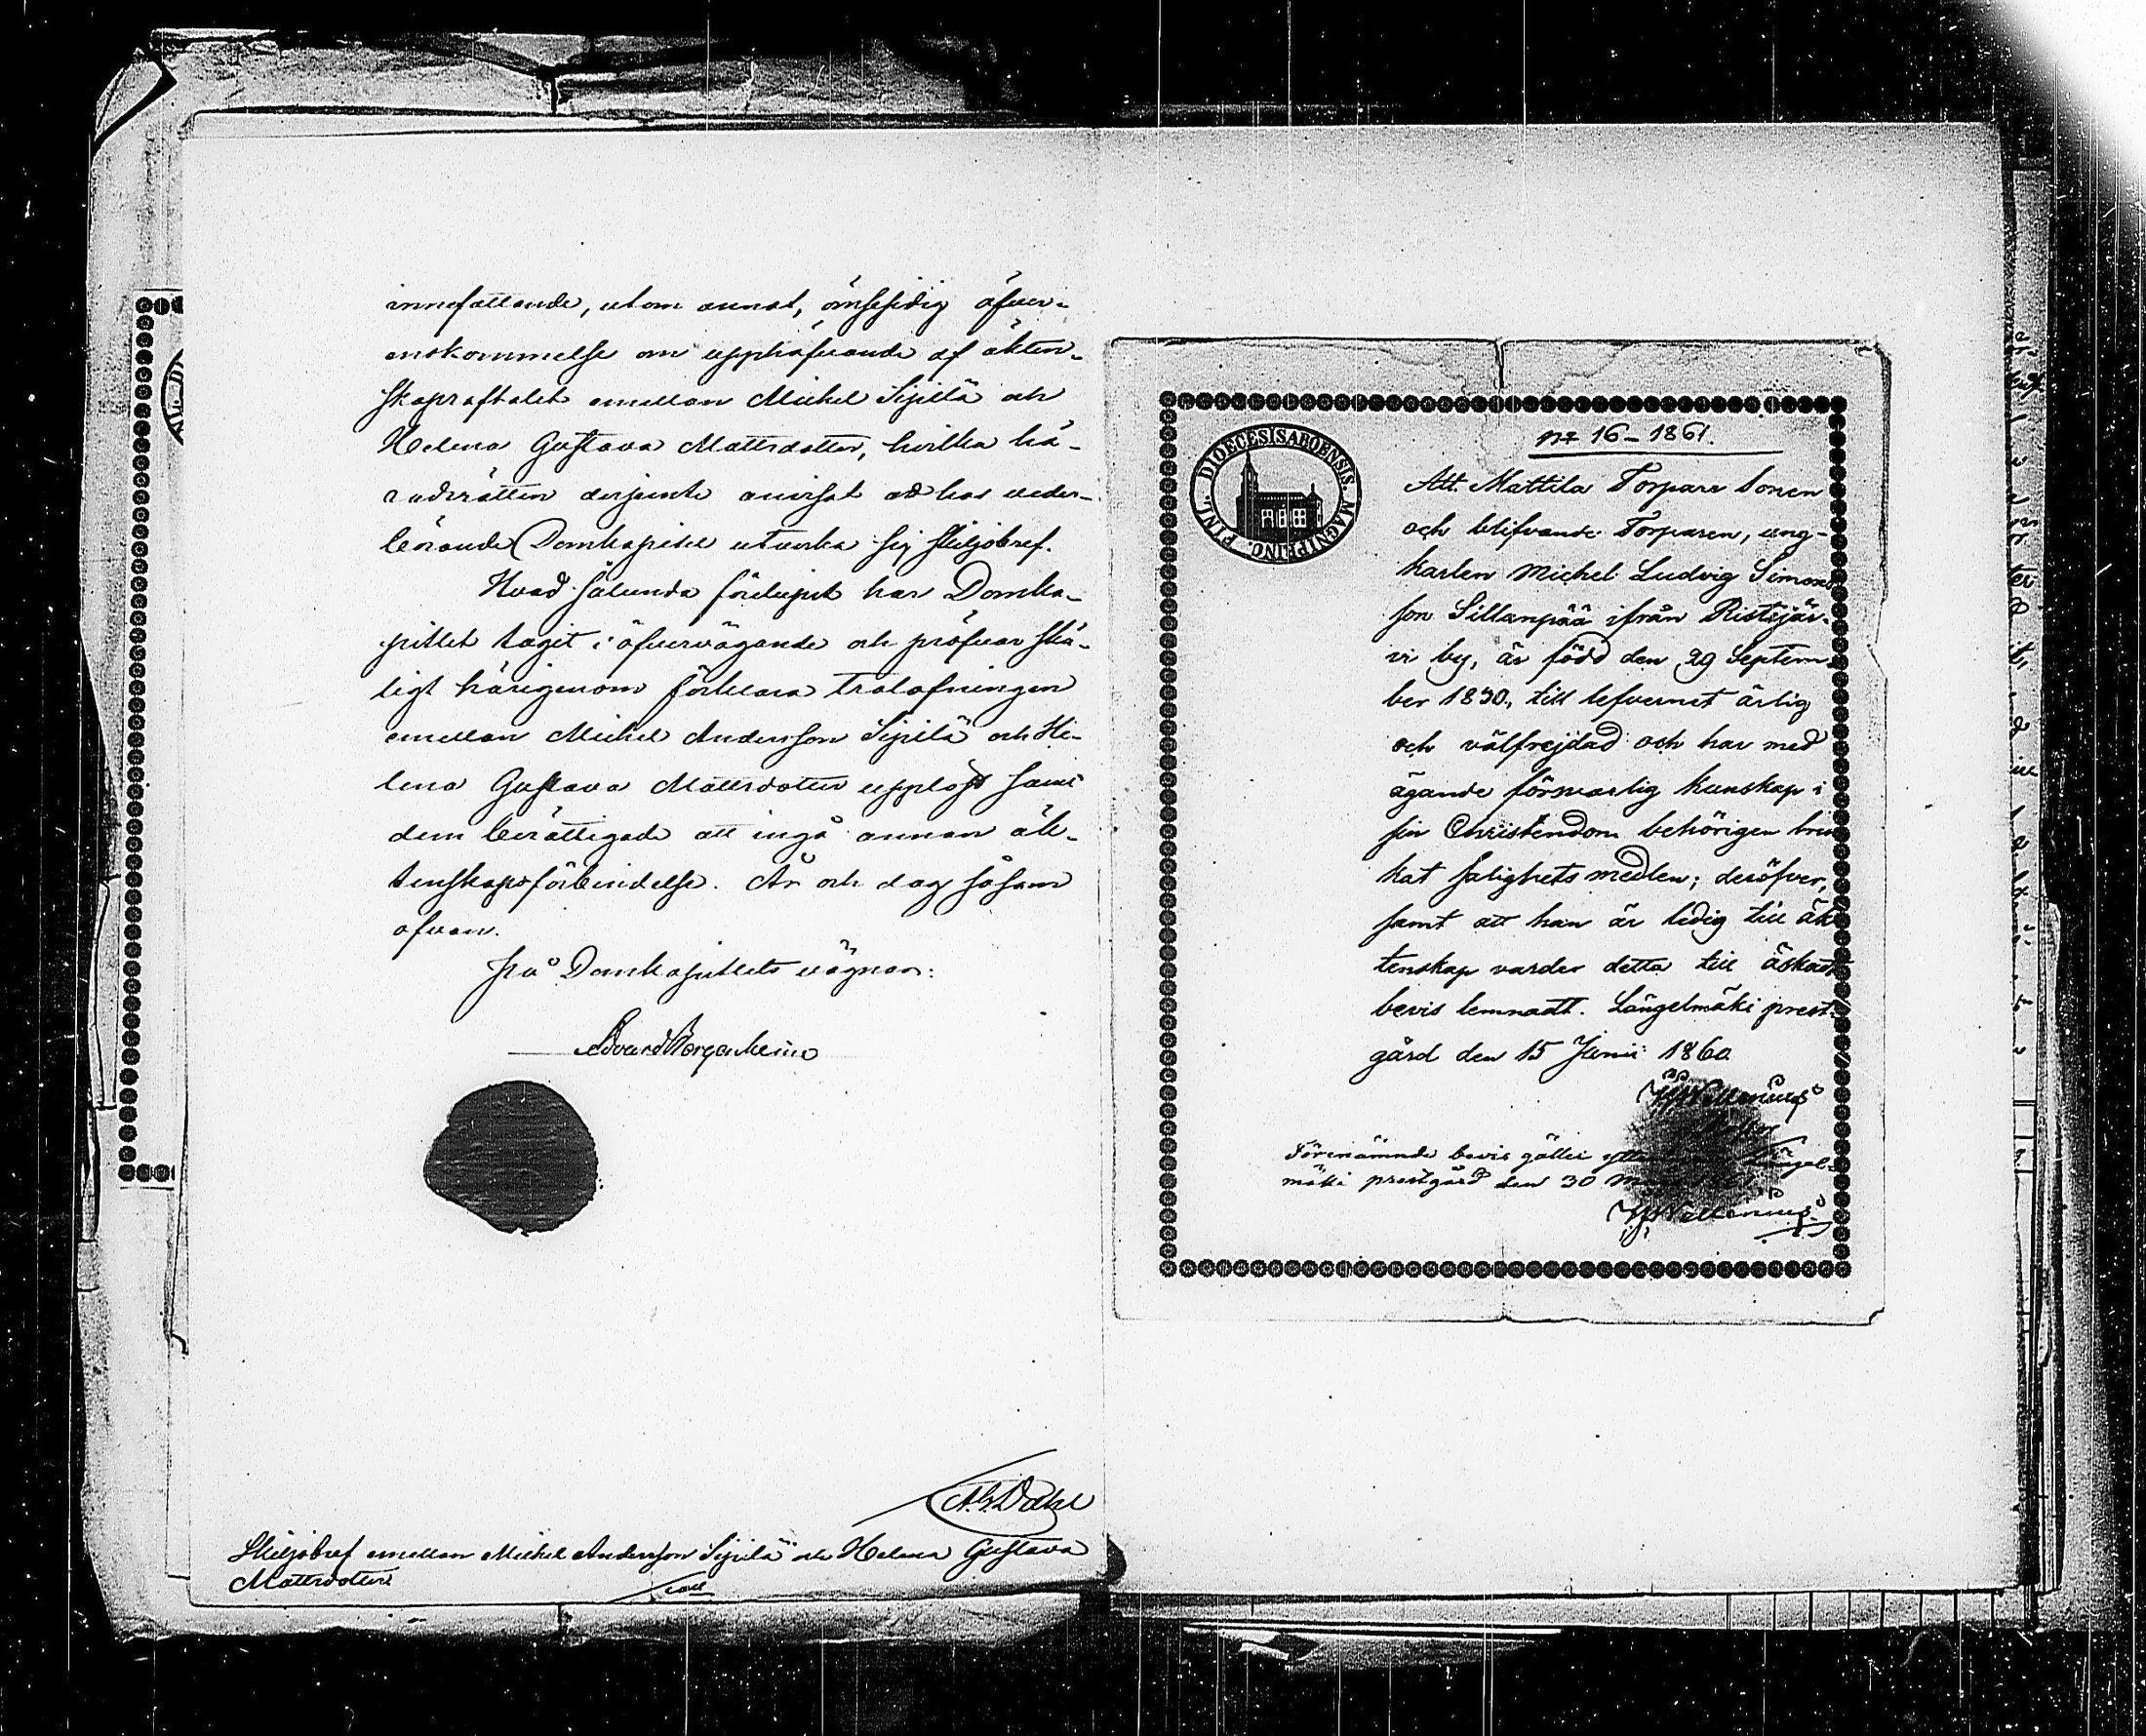 innefattande, utom annat, ömsesidig öfver-
enskommelse om upphäfvande af äkten-
skapsaftalet emellan Michel Sipilä och
Helena Gustava Mattsdotter, hvilka hä-
radsrätten derjemte anvisat att hos veder-
börande Domkapitel utverka sig skiljobref.
Hvad sålunda förelupit har Domka-
pitlet tagit i öfvervägande och pröfvar skä-
ligt härigenom förklara trolofningen
emellan Michel Andersson Sipilä och He-
lena Gustava Mattsdotter upplöst samt
dem berättigade att ingå annan äk-
tenskapsförbindelse. År och dag såsom
ofvan.
På Domkapitlets vägnar:
Edvard Bergenheim
A. G. Dahl
Skiljobref emellan Michel Andersson Sipilä och Helena Gustava
Mattsdotter
DIOECESIS ABOENSIS. MAGN. PRINC. FINL.
No 16 – 1861.
Att Mattila Torpare Sonen
och blifvande Torparen, ung-
karlen Michel Ludvig Simons
son Sillanpää ifrån Ristijär-
vi by, är född den 29 Septem-
ber 1830., till lefvernet ärlig
och välfrejdad och har med
ägande försvarlig kunskap i
sin Christendom behörigen bru
kat salighets medlen; deröfver,
samt att han är ledig till äk
tenskap varder detta till äskadt
bevis lemnadt. Längelmäki prest-
gård den 15 Junii 1860
Wallenius
Förenämnde bevis gäller Längel-
mäki prestgård den 30
Wallenius